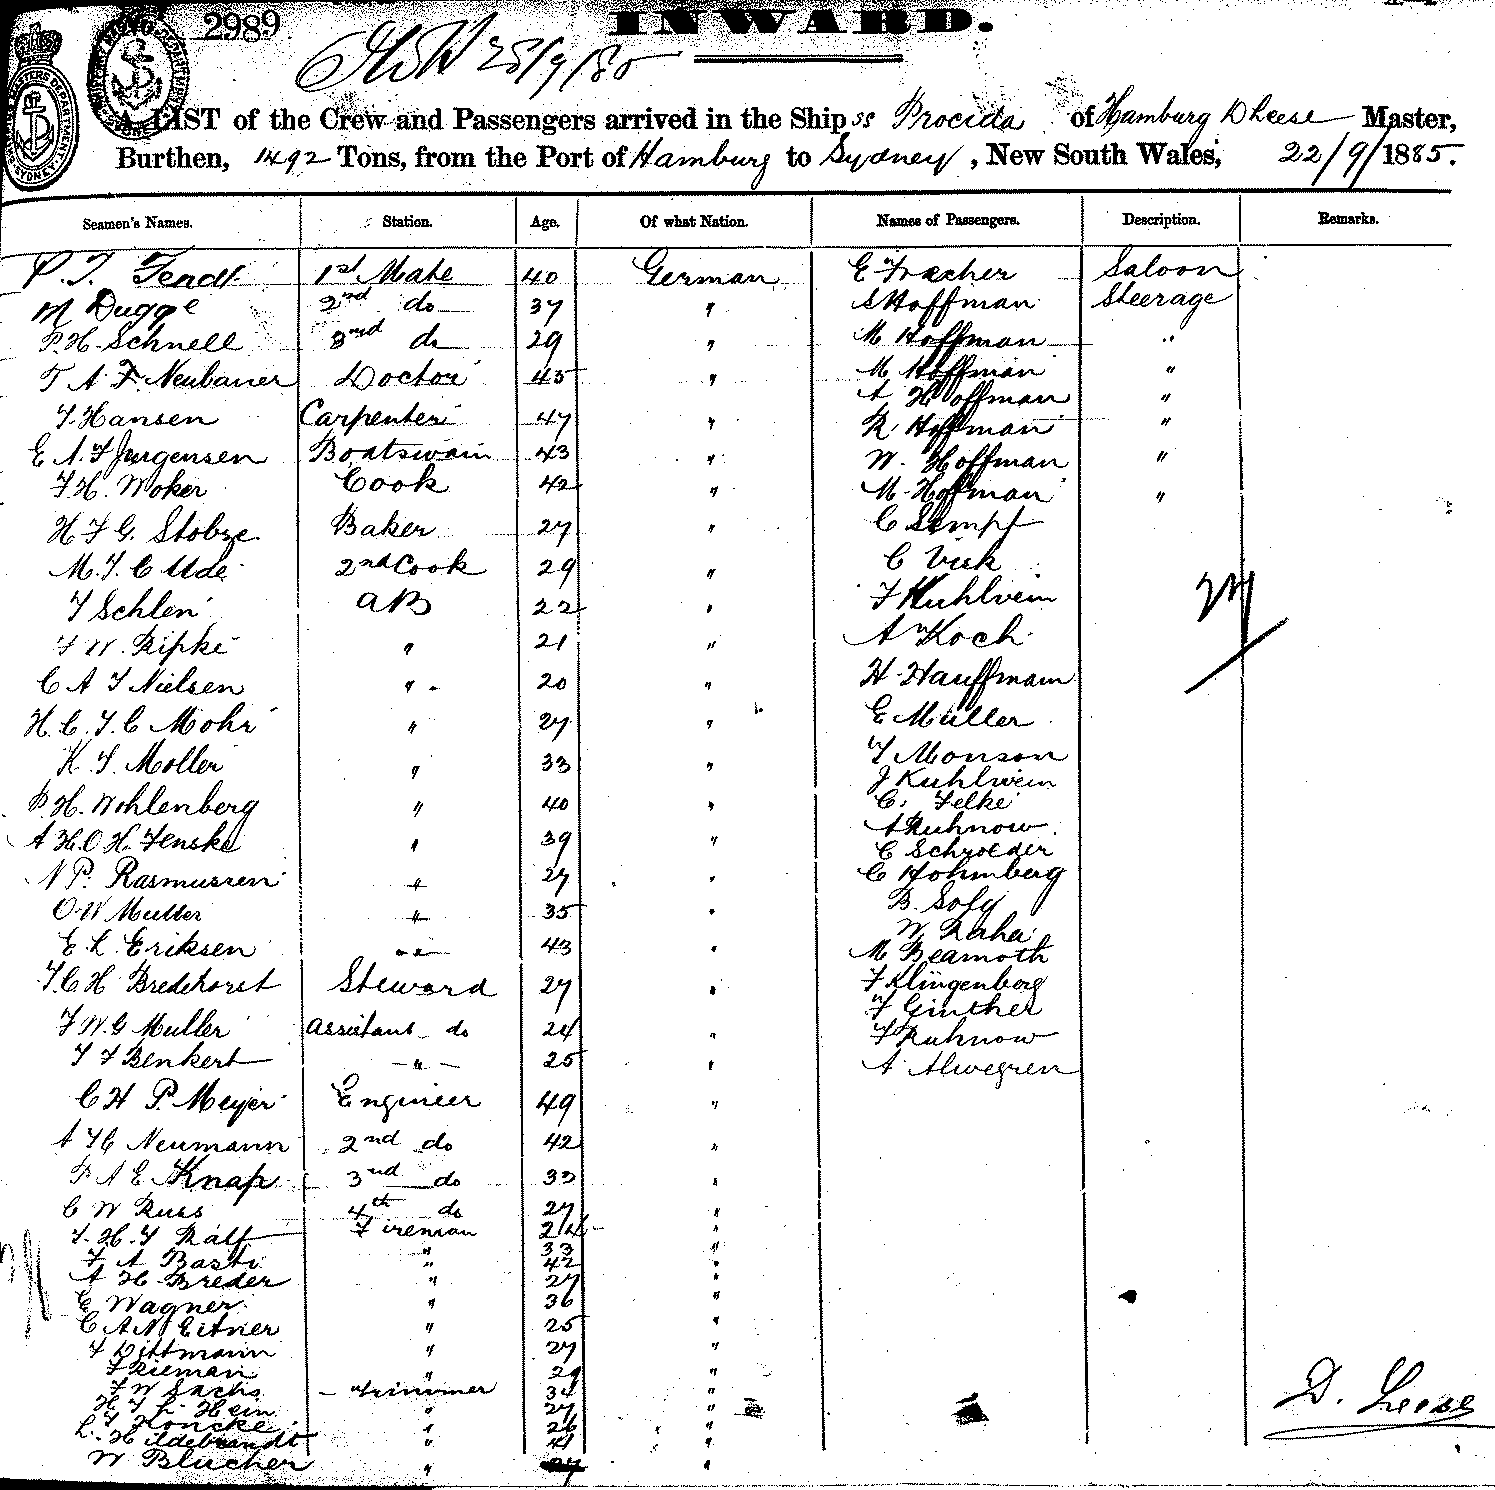 2989
INWARD.
HSW 25/9/85
A LIST of the Crew and Passengers arrived in the Ship ss Procida of Hamburg D Leese Master,
Burthen, 1492 Tons, from the Port of Hamburg to Sydney, New South Wales, 22/9/1885.
Seamen's Names. Station. Age. Of what Nation. Names of Passengers. Description. Remarks.
P. J. Fendt 1st Mate 40 German E Fracher Saloon
M Dugge 2nd do 37 " S Hoffman Steerage
P. H. Schnell 3rd do 29 " M Hoffman "
T A F Neubauer Doctor 45 " M Hoffman "
A Hoffman "
J. Hansen Carpenter 47 " R. Hoffman "
E A. J Jurgensen Boatswain 43 " W. Hoffman "
J H. Woker Cook 42 " M. Hoffman "
H J G. Stobze Baker 27 " C Sempf
M. J. C Ude 2nd Cook 29 " C Vick
J Schlen AB 22 " F Kuhlvein
J W. Ripke " 21 " A Koch
C A J Nielsen " 20 " H. Hauffmann
H. C. J. C Mohr " 27 " E Muller
K. J. Moller " 33 " J Monson
J Kuhlwein
P. H. Wohlenberg " 40 " C. Felke
A Ruhnow
A H. O H. Fenske " 39 " C Schroeder
N P. Rasmussen " 27 " C Hohmberg
O. W Muller " 35 " B. Sofy
W Raha
E. L. Eriksen " 43 " M Beamoth
J. C H Bredehorst Steward 27 " F Klingenberg
F Ginther
F W. G Muller Assistant do 24 " F Ruhnow
J F Benkert " 25 " A Alwegren
C H P. Meyer Engineer 49 "
A H C Neumann 2nd do 42 "
P A E Knap 3rd do 33 "
C W Russ 4th do 27 "
J. H. J Ralf Fireman 24 "
F A Basti " 33 "
42
A H Breder " 27 "
E Wagner " 36 "
C A N Eitner " 25 "
J Dittmann " 27 "
F Rieman " 29 "
F W Sachs Trimmer 34 "
H J L Hein " 27 "
L J Honcke " 26 "
L. Hildebrandt " 41 "
W Blucher " "
D. Leese